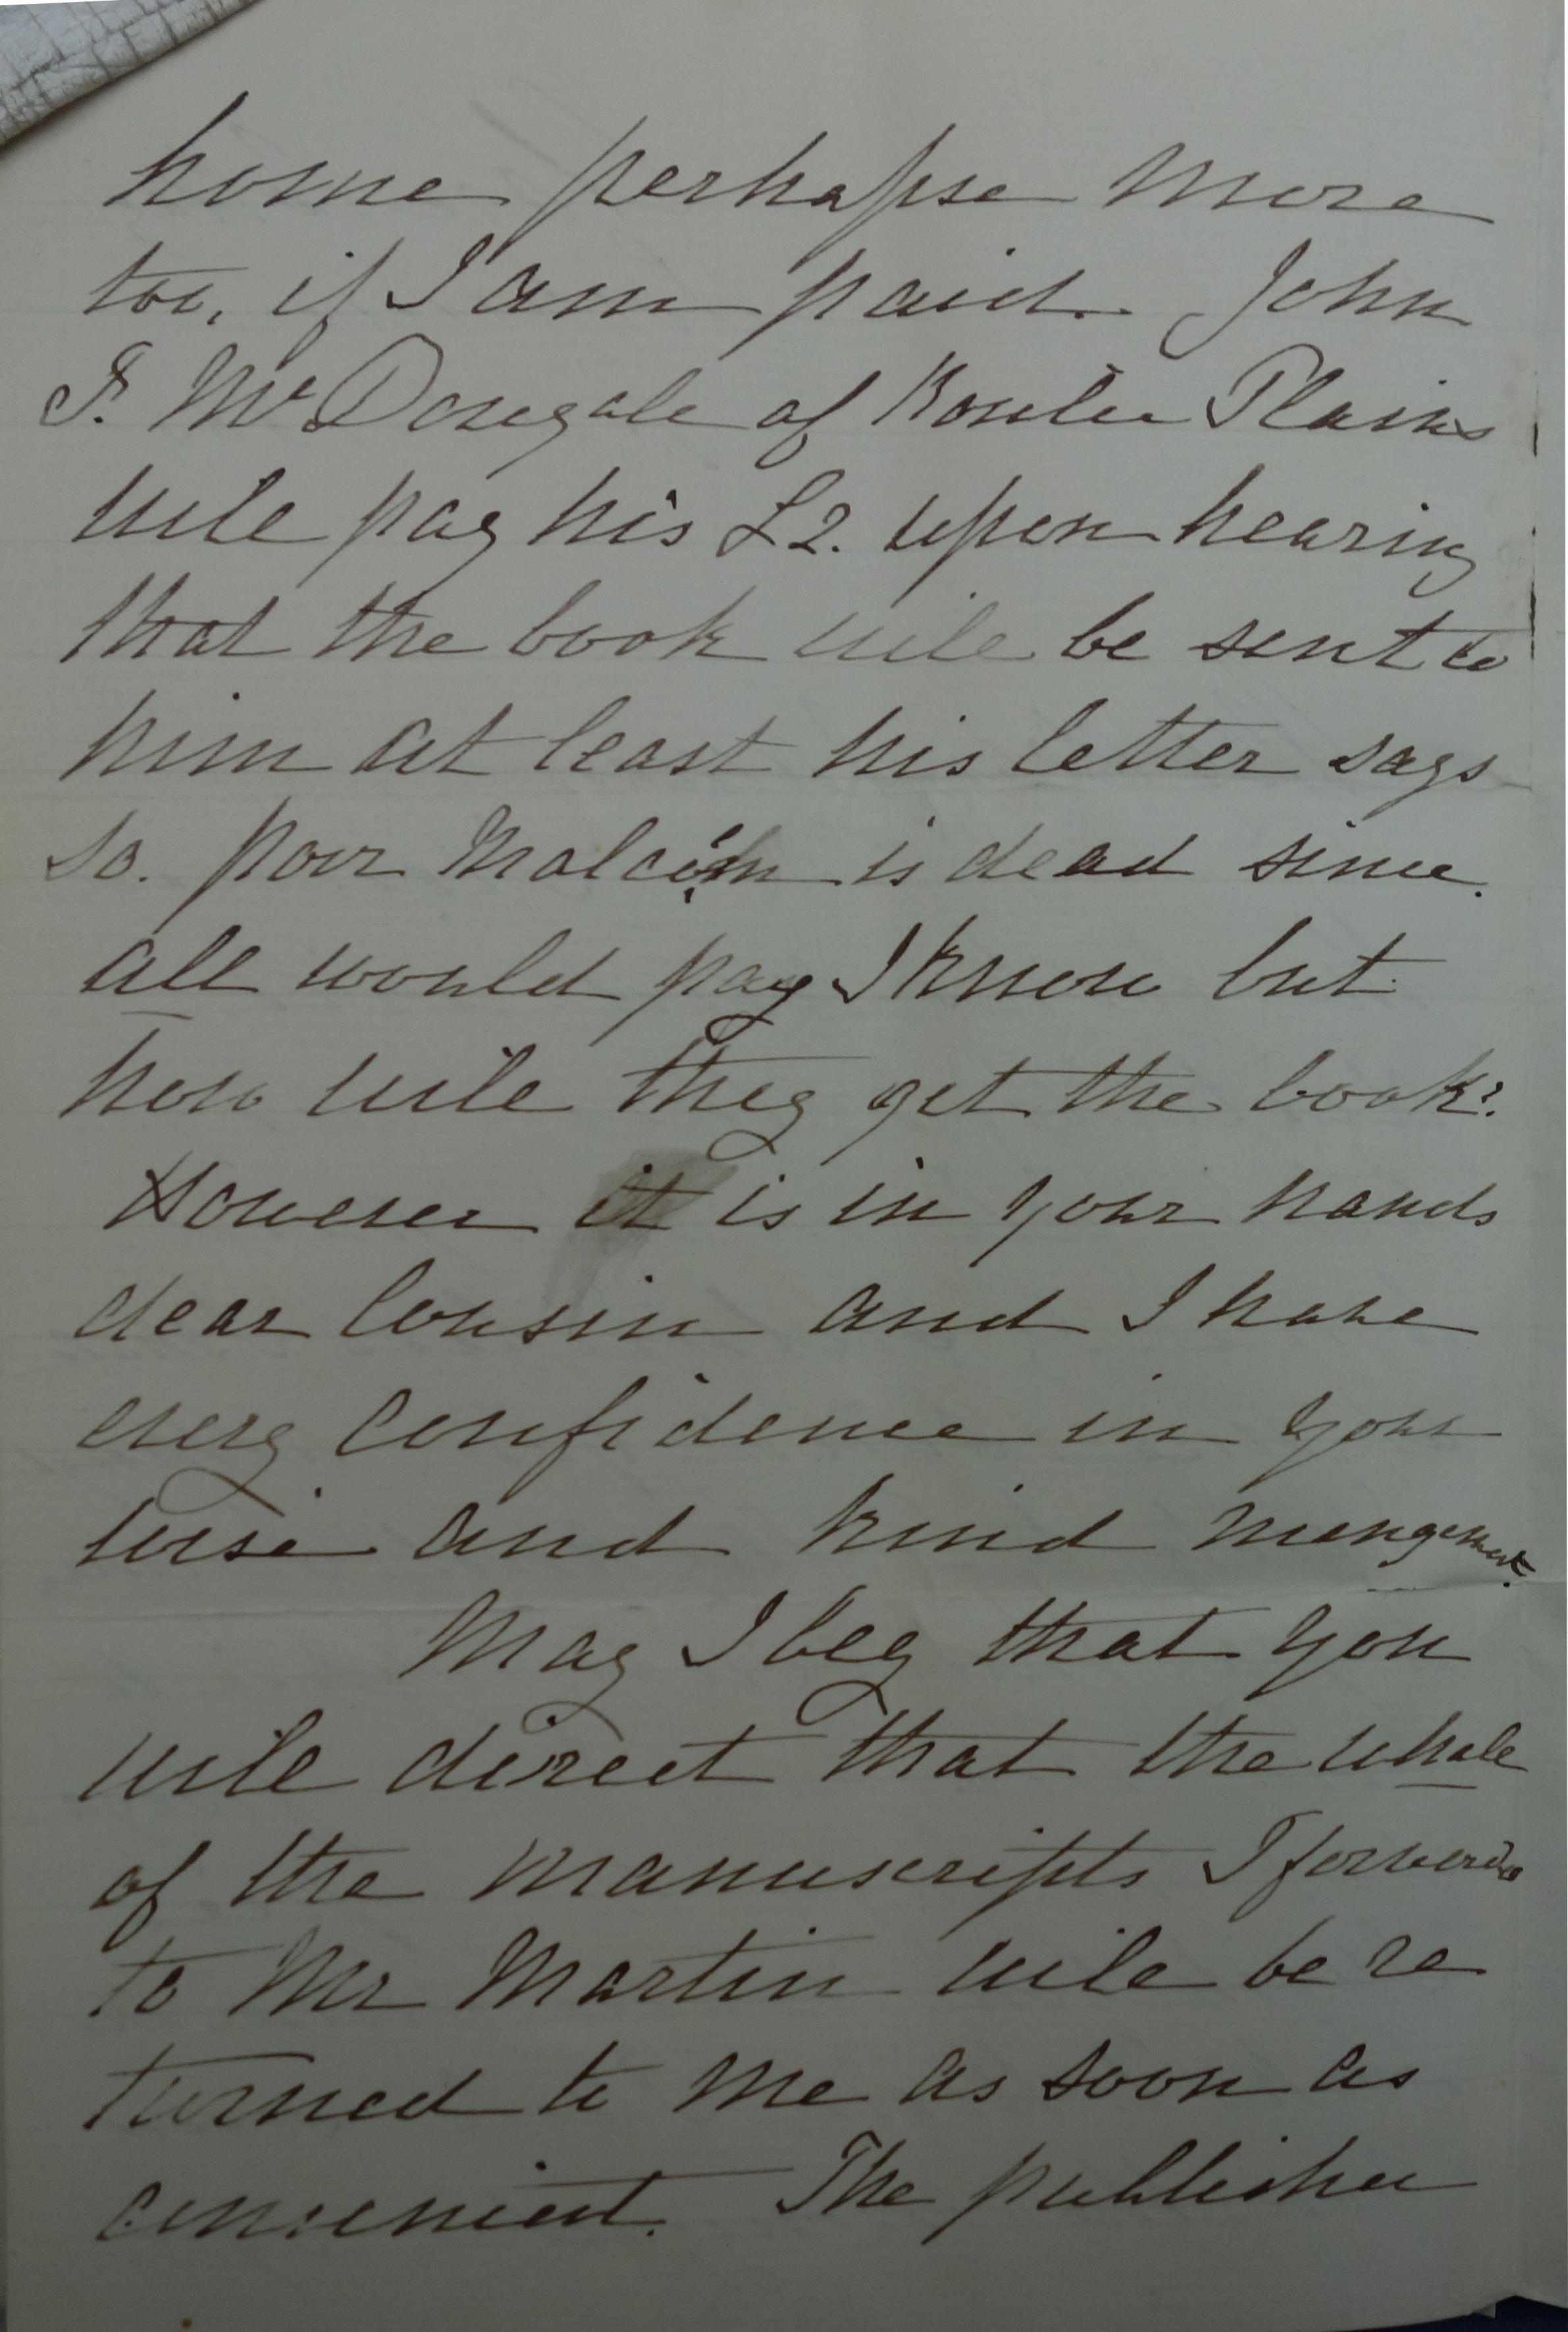 home perhapse more
too, if I am paid. John
F. McDonegale of Plains
will pay his £2. upon hearing
that the book will be sent to
him at least his letter says
so. poor Malcolm is dead since.
all would pay I know but
how will they get the book?
However it is in your hands
dear Cousin and I have
every confidence in your
wise and kind mangement.
May I beg that you
will direct that the whole
of the manuscripts I forwarded
to Mr Martin will be re
turned to me as soon as
convenient. The publisher